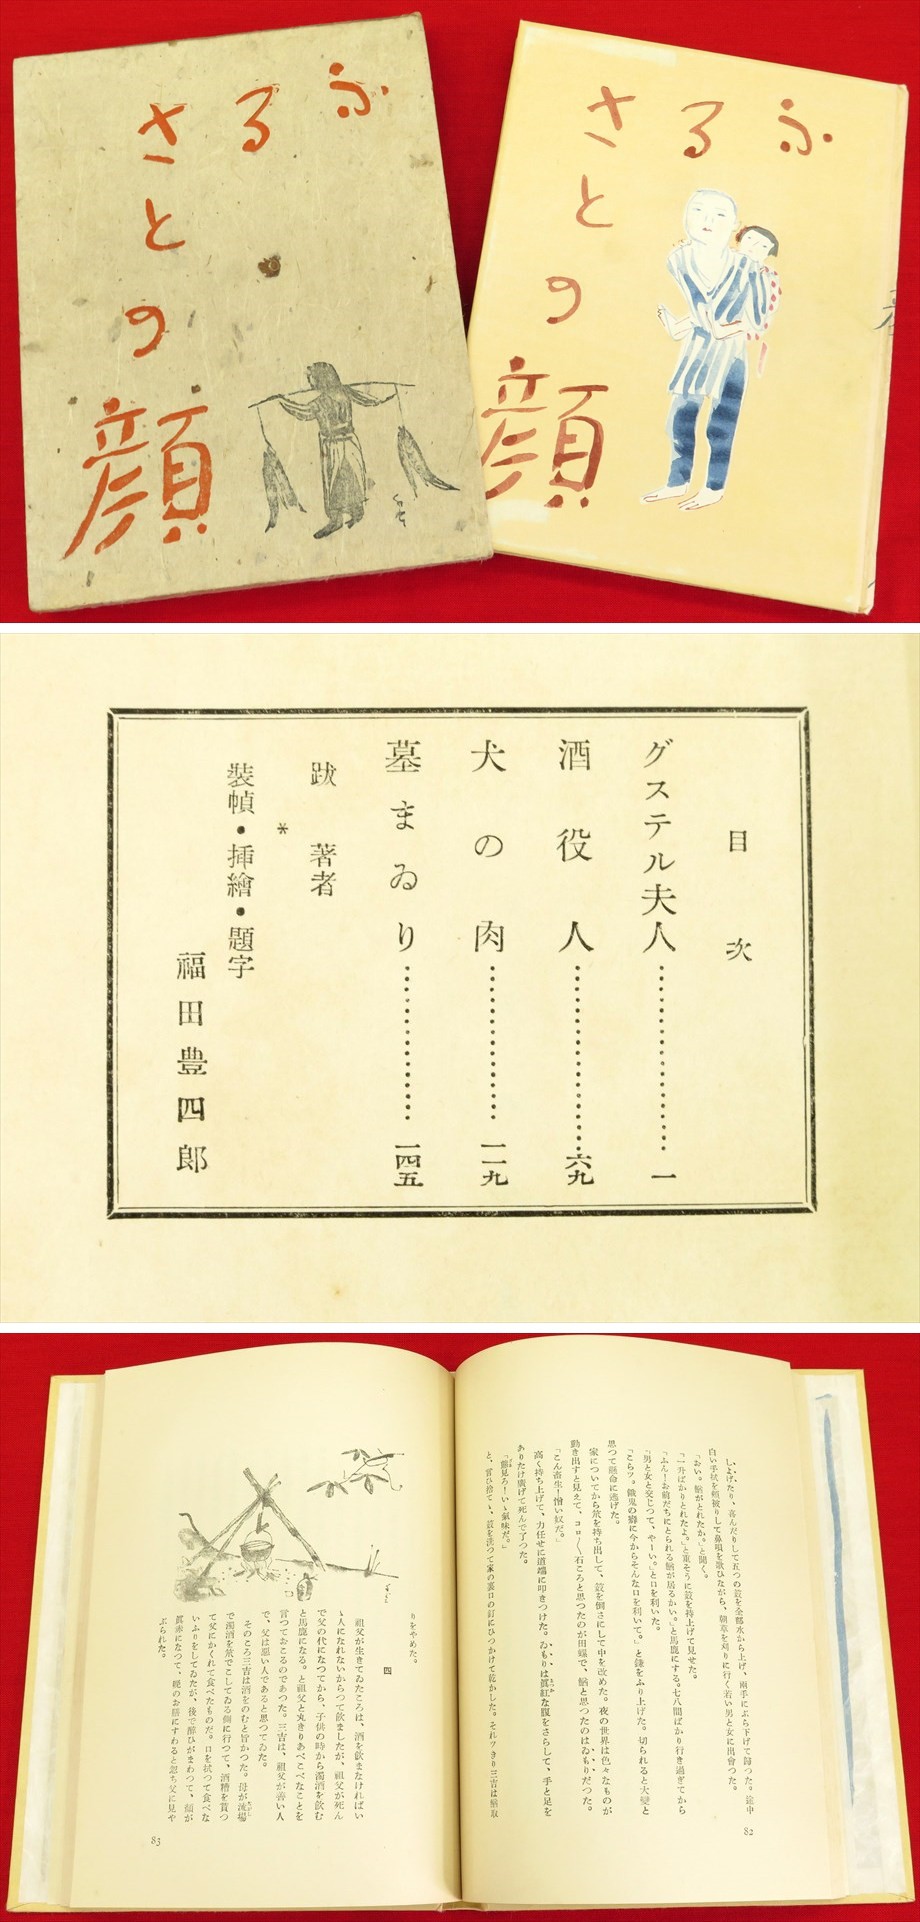 ふるさとの顔
ふるさとの顔
目次
グステル夫人……………一
酒役人……………六九
犬の肉……………一一九
墓まゐり……………一四五
跋 著者
*
裝幀・挿繪・題字
福田豊四郎
しよげたり、喜んだりして五つの筌を全部水から上げ、兩手にぶら下げて歸つた。途中
白い手拭を頬被りして鼻唄を歌ひながら、朝草を刈りに行く若い男と女に出會つた。
「おい。鰌がとれたか。」と聞く。
「一升ばかりとれたよ。」と重そうに筌を持上げて見せた。
「ふん！お前だちにとられる鰌が居るかい。」と馬鹿にする。七八間ばかり行き過ぎてから
「男と女と交じつて、やーい。」と口を利いた。
「こらツ。餓鬼の癖に今からそんな口を利いて。」と鎌をふり上げた。切られると大變と
思つて懸命に逃げた。
家についてから笊を持ち出して、筌を倒さにして中を改めた。夜の世界は色々なものが
動き出すと見えて、コロ〳〵石ころと思つたのが田螺で、鰌と思つたのはゐもりだつた。
「こん畜生！憎い奴だ。」
高く持ち上げて、力任せに道端に叩きつけた。ゐもりは眞紅な腹をさらして、手と足を
ありたけ廣げて死んで了つた。
「態見ろ！いゝ氣味だ。」
と、言ひ捨てゝ、筌を洗つて家の裏口の釘にひつかけて乾かした。それツきり三吉は鰌取
82
りをやめた。
四
祖父が生きてゐたころは、酒を飲まなければい
ゝ人になれないからつて飲ましたが、祖父が死ん
で父の代になつてから、子供の時から濁酒を飲む
と馬鹿になる。と祖父と丸きりあべこべなことを
言つておこるのであつた。三吉は、祖父が善い人
で、父は惡い人であると思つてゐた。
そのころ三吉は酒をのむと旨かつた。母が流場
で濁酒を笊でこしてゐる側に行つて、酒糟を貰つ
て父にかくれて食べたものだ。口を拭つて食べな
いふりをしてゐたが、後で醉ひがまわつて、頬が
眞赤になつて、晩のお膳にすわると忽ち父に見や
ぶられた。
83